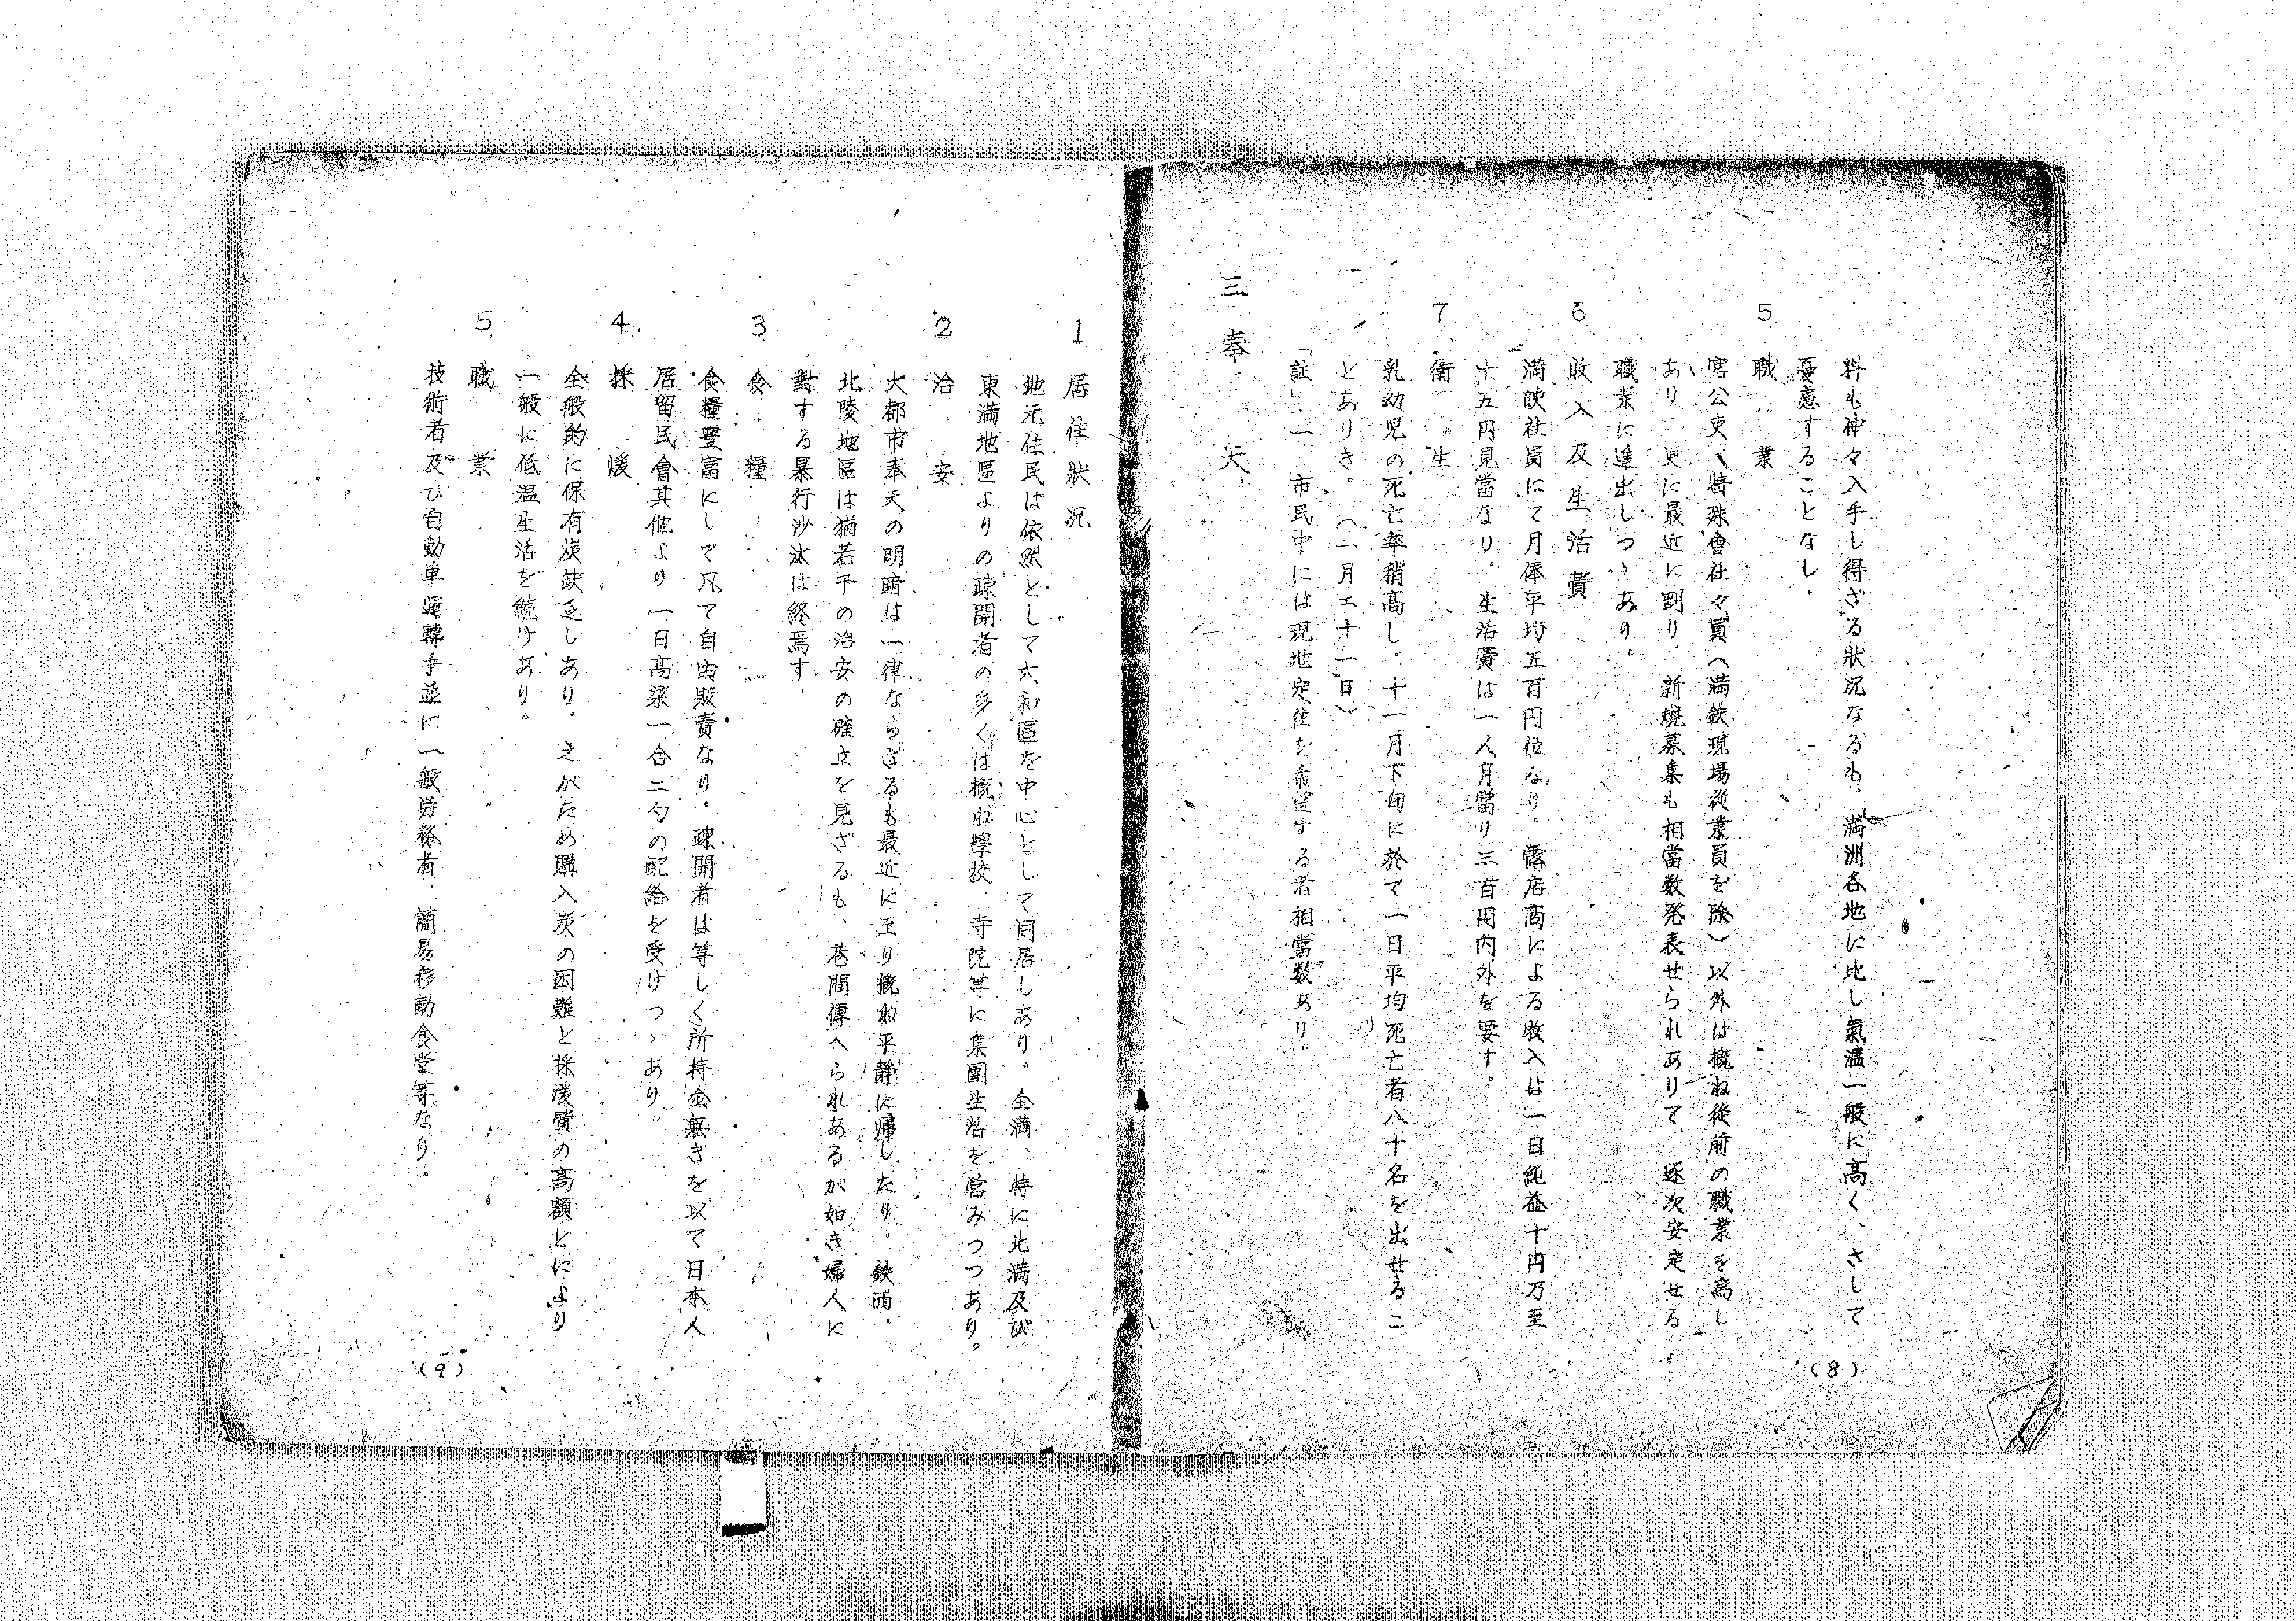 料も神々入手し得ざる状況なるも、満洲各地に比し氣温一般に高く、さして
憂慮することなし。
5 職業
官公吏、特殊會社々員（満鉄現場従業員を除）以外は概ね従前の職業を為し
あり 更に最近に到り、新規募集も相當数発表せられありて、逐次安定せる
職業に進出しつゝあり。
6 收入及生活費
満映社員にて月俸平均五百円位なり。露店商による收入は一日純益十円乃至
十五円見當なり。生活費は一人月當り三百円内外を要す。
7 衛生
乳幼児の死亡率稍高し。十一月下旬に於て一日平均死亡者八十名を出せるこ
とありき。（一月二十一日）
「註」一 市民中には現地定住を希望する者相當数あり。
三 奉天
(8)
1 居住狀況
地元住民は依然として大和區を中心として同居しあり。全満、特に北満及び
東満地區よりの疎開者の多くは概ね學校、寺院等に集團生活を営みつつあり。
2 治安
大都市奉天の明暗は一律ならざるも最近に至り概ね平静に帰したり。鉄西、
北陵地區は猶若干の治安の確立を見ざるも、巷間傳へられあるが如き婦人に
對する暴行沙汰は終焉す。
3 食糧
食糧豊富にして凡て自由販賣なり。疎開者は等しく所持金無きを以て日本人
居留民會其他より一日高梁一合二勺の配給を受けつゝあり。
4 採煖
全般的に保有炭缺乏しあり。之がため購入炭の困難と採煖費の高額とにより
一般に低温生活を続けあり。
5 職業
技術者及び自動車運轉手並に一般労務者、簡易移動食堂等なり。
(9)